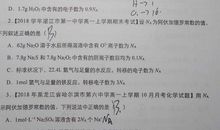 D. 1.7g H₂O₂ 中含有的电子数为 0.9Nₐ
2.【2018学年湛江市第一中学高一上学期期末考试】设 Nₐ 为阿伏加德罗常数的值,
下列叙述正确的是( B )
A. 62g Na₂O 溶于水后所得溶液中含有 O²⁻ 离子数为 Nₐ
B. 7.8g Na₂S 和 7.8g Na₂O₂ 中含有的阴离子数目均为 0.1Nₐ
C. 标准状况下, 22.4L 氯气与足量的水反应, 转移电子数为 Nₐ
D. 1mol 氯气与足量的镁反应, 转移电子数为 3Nₐ
3.【2018年黑龙江省哈尔滨市第六中学高一上学期10月月考化学试题】用 Nₐ
示阿伏加德罗常数的值, 下列说法中正确的是
A. 1mol·L⁻¹ Na₂SO₄ 溶液含有 2Nₐ 个 Na⁺